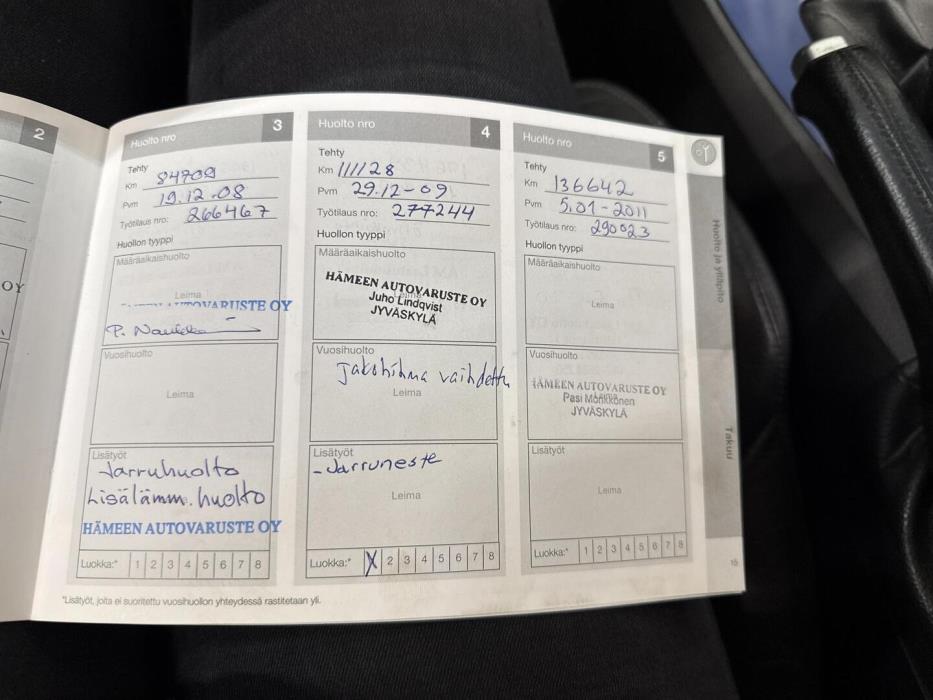 2
OY
Huolto nro 3
Tehty
Km 84709
Pvm 19.12.08
Työtilaus nro: 266467
Huollon tyyppi
Määräaikaishuolto
Leima
AUTOVARUSTE OY
Vuosihuolto
Leima
Lisätyöt
Jarruhuolto
Lisälämm. huolto
HÄMEEN AUTOVARUSTE OY
Luokka:* 1 2 3 4 5 6 7 8
Huolto nro 4
Tehty
Km 111128
Pvm 29.12-09
Työtilaus nro: 277244
Huollon tyyppi
Määräaikaishuolto
Leima
HÄMEEN AUTOVARUSTE OY
Juho Lindqvist
JYVÄSKYLÄ
Vuosihuolto
Jakohihna vaihdettu
Leima
Lisätyöt
-Jarruneste
Leima
Luokka:* X 2 3 4 5 6 7 8
Huolto nro 5
Tehty
Km 136642
Pvm 5.01-2011
Työtilaus nro: 290023
Huollon tyyppi
Määräaikaishuolto
Leima
Vuosihuolto
Leima
HÄMEEN AUTOVARUSTE OY
Pasi Mönkkönen
JYVÄSKYLÄ
Lisätyöt
Leima
Luokka:* 1 2 3 4 5 6 7 8
Huolto ja ylläpito
Takuu
15
*Lisätyöt, joita ei suoritettu vuosihuollon yhteydessä rastitetaan yli.